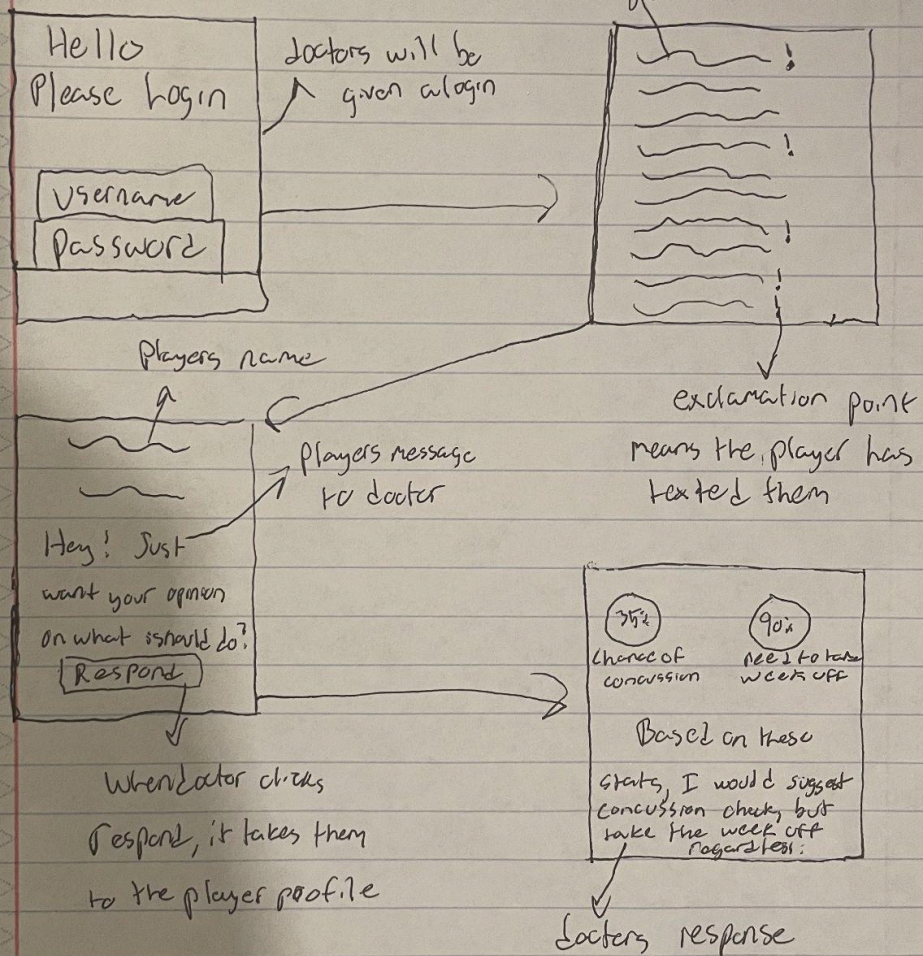 Hello
Please Login
username
password
doctors will be
given a login
!
!
!
!
exclamation point
means the player has
texted them
Players name
Players message
to doctor
Hey! Just
want your opinion
on what ishould do?
Respond
When doctor clicks
respond, it takes them
to the player profile
35%
chance of
concussion
90%
need to take
week off
Based on these
stats, I would suggest
concussion check, but
take the week off
regardless.
docters response